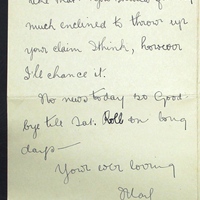 much inclined to throw up
your claim I think, however
I'll chance it.
No news today so Good-
bye till Sat. Roll on long
days—
Your ever loving